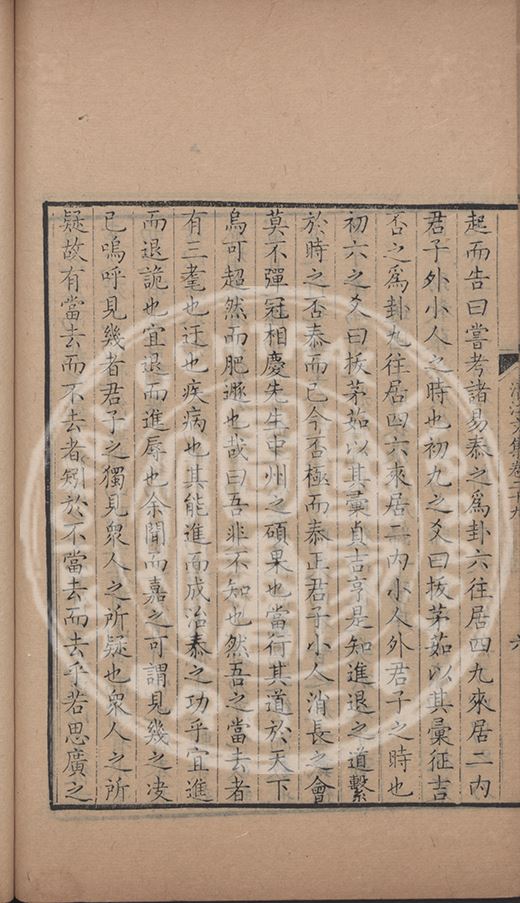 起而告曰嘗考諸易泰之為卦六往居四九來居二內
君子外小人之時也初九之爻曰拔茅茹以其彙征吉
否之為卦九往居四六來居二內小人外君子之時也
初六之爻曰拔茅茹以其彙貞吉亨是知進退之道繫
於時之否泰而已今否極而泰正君子小人消長之會
莫不彈冠相慶先生中州之碩果也當行其道於天下
烏可超然而肥遯也哉曰吾非不知也然吾之當去者
有三耄也迂也疾病也其能進而成治泰之功乎宜進
而退詭也宜退而進辱也余聞而嘉之可謂見幾之決
已嗚呼見幾者君子之獨見衆人之所疑也衆人之所
疑故有當去而不去者矧於不當去而去乎若思廣之
文集卷十九
六